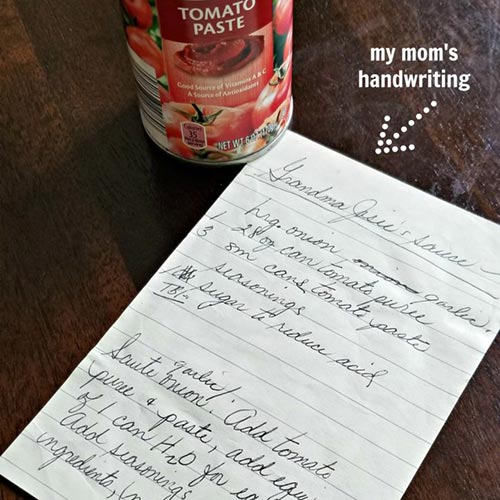 TOMATO
PASTE
Good Source of Vitamins A & C
A Source of Antioxidants
NET WT 6
my mom's
handwriting
Grandma Josie's Sauce
lrg. onion, garlic,
1 28 oz can tomato puree
3 sm cans tomato paste
seasonings
1 TBL. sugar to reduce acid
Saute onion garlic/. Add tomato
puree & paste, add equiv
of 1 can H2O for ea
Add seasonings
ingredients,